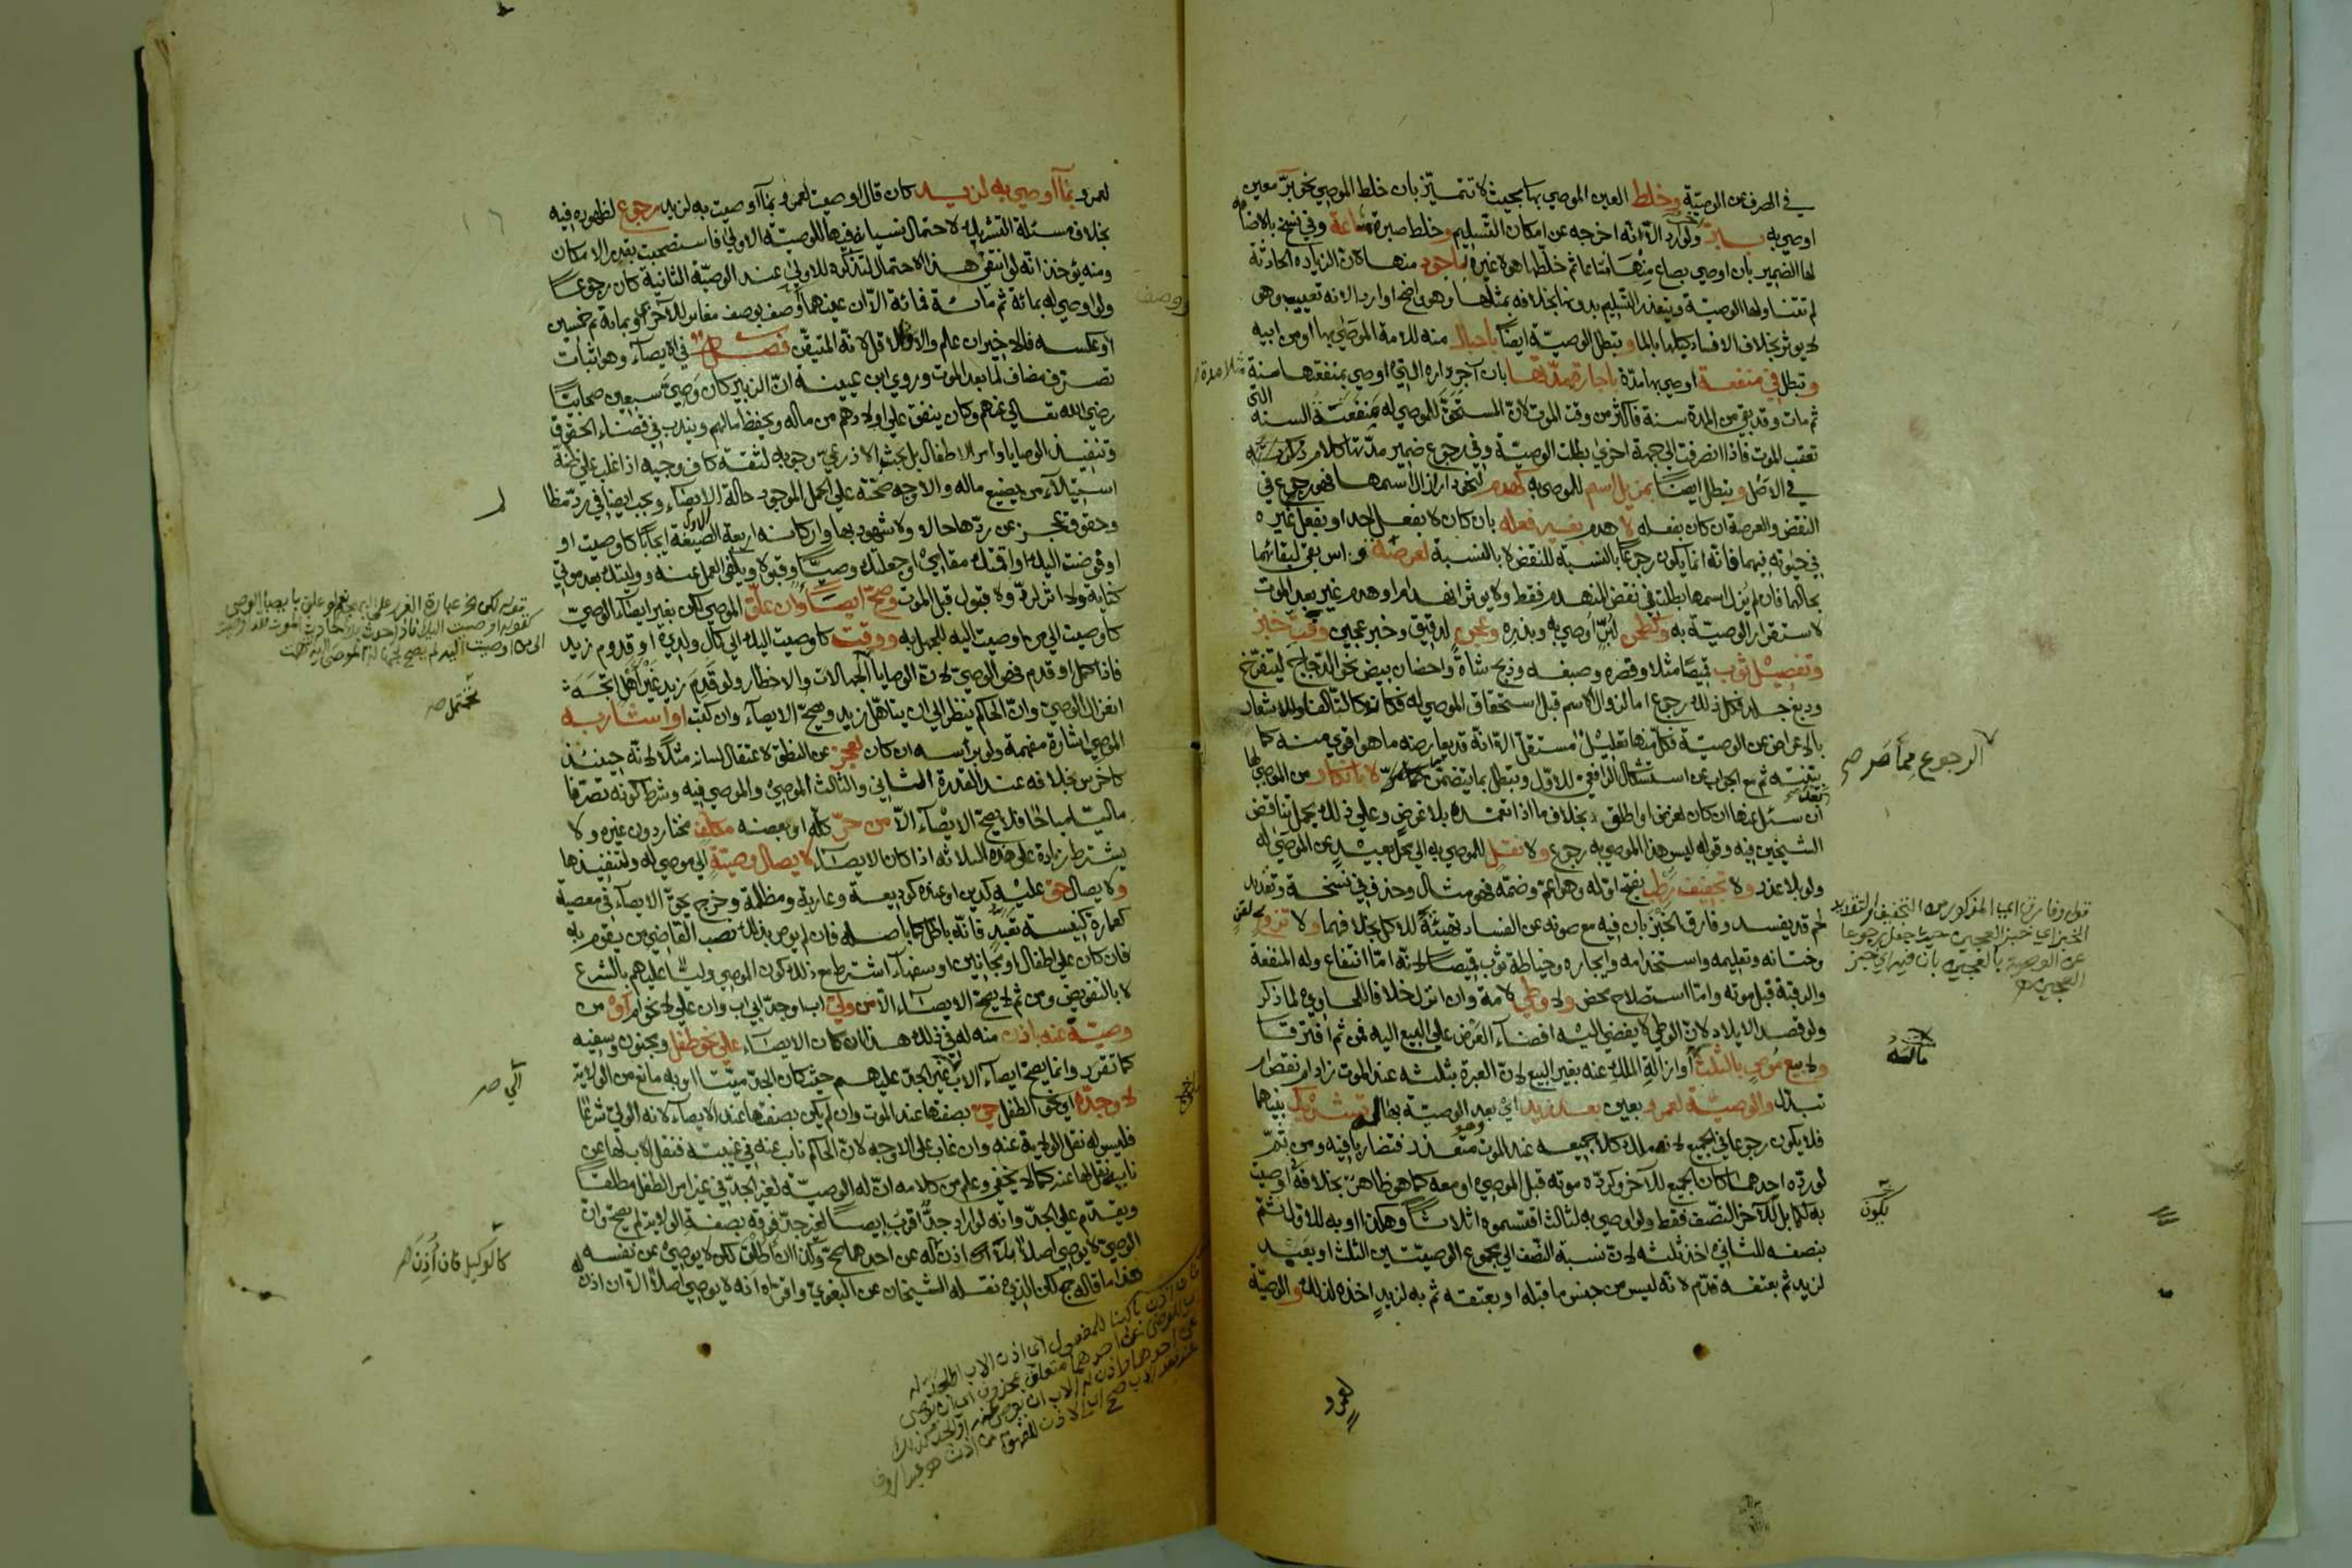 في الصرف عن الوصيّة وخلط العين الموصي بها بحيث لا تتميّز بان خلط الموصي نحو برّ معين
اوصي به ببرّ ولو اردا لانه اخرجه عن امكان التسليم وخلط صبرة مشاعة وفي نسخ بالاضافه
لها الضمير بان اوصي بصاع منها مشاعا ثم خلطها هو او غيره باجود منها لان الزيادة الحادثة
لم تتناولها الوصيّة ويتعذر التسليم بدونها بخلافه بمثلها وهو واضح او اردا لانه تعييب وهو
لا يوثر بخلاف الافساد بالما وتبطل الوصيّة ايضا باحبال منه للامة الموصي بها او من ابيه
وتبطل في منفعة اوصي بها مدّة باجارة مدّتها بان آجر داره التي اوصي بمنفعتها سنة مثلا مدة
ثم مات وقد بقي من المدة سنة فاكثر من وقت الموت لانّ المستحقّ للموصي له منفعة السنة التي
تعقب الموت فاذا انصرفت الي جهة اخري بطلت الوصيّة وفي رجوع ضمير مدّتها كلام ذكرته
في الاصل وتبطل ايضا بمزيل اسم للموصي به كهدم لنحو دار ازال اسمها فهو رجوع في
النقض والعرصة ان كان بفعله لا هدم بغير فعله بان كان لا بفعل احد او بفعل غيره
في حيوته فيهما فانه انما يكون رجوعا بالنسبة للنقض لا بالنسبة لعرصة و اس بقي لبقائهما
بحالهما فان لم يزل اسمها بطلت في نقض المنهدم فقط ولا يوثر انهدام او هدم غير بعد الموت
لاستقرار الوصيّة به وكطحن لبرّ اوصي به وبذره وعجن لدقيق وخبز عجين وقت خبز
وتفصيل ثوب قميصا مثلا وقصره وصبغه وذبح شاة واحضان بيض نحو الدجاج ليتفرّخ
ودبغ جلد فكل ذلك رجوع اما لزوال الاسم قبل استحقاق الموصي له فكان كالتالف او للاشعار
بالاعراض عن الوصيّة فكل منها تعليل مستقل الّا انه قد يعارضه ما هو اقوي منه كما
بيّنته ثم مع الجواب عن استشكال الرافعي للاول وتبطل بما يتضمن لا بانكار من الموصي لها
ان سئل عنها ان كان لغرض او اطلق بخلاف ما اذا تعمّده بلا غرض وعلي ذلك يحمل تناقض
الشيخين فيه وقوله ليس هذا الموصي به رجوع ولا نقل للموصي به الي محل بعيد عن الموصي له
ولو بلا عذر ولا تجفيف رطب بفتح اوّله وهو اعم وضمّه فهو مثال وحذف في نسخة وتقديد
لحم قد يفسد وفارق الخبز بان فيه مع صونه عن الفساد تهيئة للاكل بخلافهما ولا تزويج لقن
وختانه وتعليمه واستخدامه وايجاره وخياطة ثوب قميصا لانه اما انتفاع وله المنفعة
والرقبة قبل موته واما استصلاح محض ولا وطي لامة وان انزل خلافا للحاوي لما ذكر
ولو قصد الايلاد لان الوطي لا يفضي اليه افضاء العرض علي البيع اليه فمن ثم افترقا
ولا بيع موص بالثلث او ازالة الملك عنه بغير البيع لان العبرة بثلثه عند الموت زاد ام نقص ام
تبدّل والوصيّة لعمرو بعين بعد زيد اي بعد الوصيّة بها له تشريك بينهما
فلا يكون رجوعا في الجميع لانه ملك كلا جميعه عند الموت وهو متعذر فتضاربا فيه ومن ثمّ
لو ردّه احدهما كان الجميع للآخر وكردّه موته قبل الموصي او معه كما هو ظاهر بخلاف اوصيت
به لكما بل للآخر النصف فقط ولو اوصي به لثالث اقتسموه اثلاثا وهكذا او به للاول ثم
بنصفه للثاني اخذ ثلثه لان نسبة النصف الي مجموع الوصيتين الثلث او بعبد
لزيد ثم بعتقه قدّم لانه ليس من جنس ما قبله او بعتقه ثم به لزيد اخذه لذلك والوصيّة
لعمرو
الرجوع مما مر صح
قوله وفارق اي المذكور من التجفيف والتقديد
الخبز اي خبز العجين حيث جعل رجوعا
عن الوصية بالعجين بان فيه اي خبز
العجين
يكون
لعمرو بما اوصي به لزيد كان قال اوصيت لعمرو بما اوصيت به لزيد رجوع لظهوره فيه
بخلاف مسئلة التشريك لاحتمال نسيانه فيها للوصيّة الاولي فاستصحبت بقدر الامكان
ومنه يؤخذ انه لو انتفي هذا الاحتمال لتذكره للاولي عند الوصيّة الثانية كان رجوعا
ولو اوصي له بمائة ثم مائة فمائة الّا ان عينهما او وصف بوصف مغاير للآخر او بمائة ثم خمسين
او عكسه فالاخير ان علم والا فالاقل لانه المتيقن فصل في الايصاء وهو اثبات
تصرف مضاف لما بعد الموت وروي ابن عيينة انّ الزبير كان وصيّ سبعين صحابيّا
رضي الله تعالي عنهم وكان ينفق علي اولادهم من ماله ويحفظ مالهم ويندب في قضاء الحقوق
وتنفيذ الوصايا وامر الاطفال بل بحث الاذرعيّ وجوبه لثقة كاف وجيه اذا غلب علي ظنه
استيلاء من يضيع ماله والاوجه صحّته علي الحمل الموجود حالة الايصاء ويجب ايضا في ردّ مظالم
وحقوق عجز عن ردّها حالا ولا شهود بها واركانه اربعة الصيغة ايجابا كاوصيت او
او فوضت اليك او اقمتك مقامي او جعلتك وصيّا وقبولا ويكفي العمل عنه ووليتك بعد موتي
كناية ولا اثر لردّ ولا قبول قبل الموت وصحّ ايصاء وان علّق الموصي لكن بغير ايصاء الوصيّ
كاوصيت الي من اوصيت اليه للجهل به ووقت كاوصيت اليك الي كمال ولدي او قدوم زيد
فاذا كمل او قدم فهو الوصيّ لان الوصايا تحتمل الجهالات والاخطار ولو قدم زيد غير اهل اتجه
انعزال الوصيّ وانّ الحاكم ينظر الي ان يتاهل زيد ويصحّ الايصاء وان كتب او اشار به
الموصي اشارة مفهمة ولو براسه ان كان لعجز عن النطق لاعتقال لسانه مثلا لانه حينئذ
كاخرس بخلافه عند القدرة الثاني والثالث الموصي والموصي فيه وشرط كونه تصرّفا
ماليّا مباحا فلا يصحّ الايصاء الّا من حرّ كلّه او بعضه مكلف مختار دون غيره ولا
يشترط زيادة علي هذه الثلاثة اذا كان الايصاء لايصال وصيّة الي موصي له ولتنفيذها
ولايصال حق عليه كدين او عنده كوديعة وعارية ومظلمة وخرج بحق الايصاء في معصية
كعمارة كنيسة تعبد فانه باطل كما باصله فان لم يوص بذلك نصب القاضي من يقوم به
فان كان علي اطفال او مجانين او سفهاء اشترط مع ذلك كون الموصي وليّا عليهم بالشرع
لا بالتفويض ومن ثم لا يصحّ الايصاء الّا من وليّ اب او جدّ ابي اب وان علي لا نحو ام او من
وصيّه عنه باذن منه له في ذلك هذا ان كان الايصاء علي نحو طفل ومجنون وسفيه
كما تقرر وانما يصحّ ايصاء الاب غير الجدّ عليهم حيث كان الجدّ ميّتا او به مانع من الولاية
لا وجدّه اي نحو الطفل حيّ بصفتها عند الموت وان لم يكن بصفتها عند الايصاء لانه الولي شرعا
فليس له نقل الولاية عنه وان غاب علي الاوجه لانّ الحاكم ناب عنه في غيبته فنقل الاب لها عن
نايبه نقل لها عنه كما لا يخفي وعلم من كلامه انّ له الوصيّة لغير الجدّ في غير امر الطفل مطلقا
ويقدّم علي الجدّ وانه لو اراد جدّا اقرب ايصاء لغير جدّ فوقه بصفة الولاية لم يصح وان
الوصيّ لا يوصي اصلا اذن له عن احدهما صحّ وكذا ان اطلق لكن لا يوصي عن نفسه
هذا ما قاله جمع لكن الذي نقله الشيخان عن البغويّ واقرّاه انه لا يوصي اصلا الّا ان اذن له
كالوكيل فان اُذِنَ له